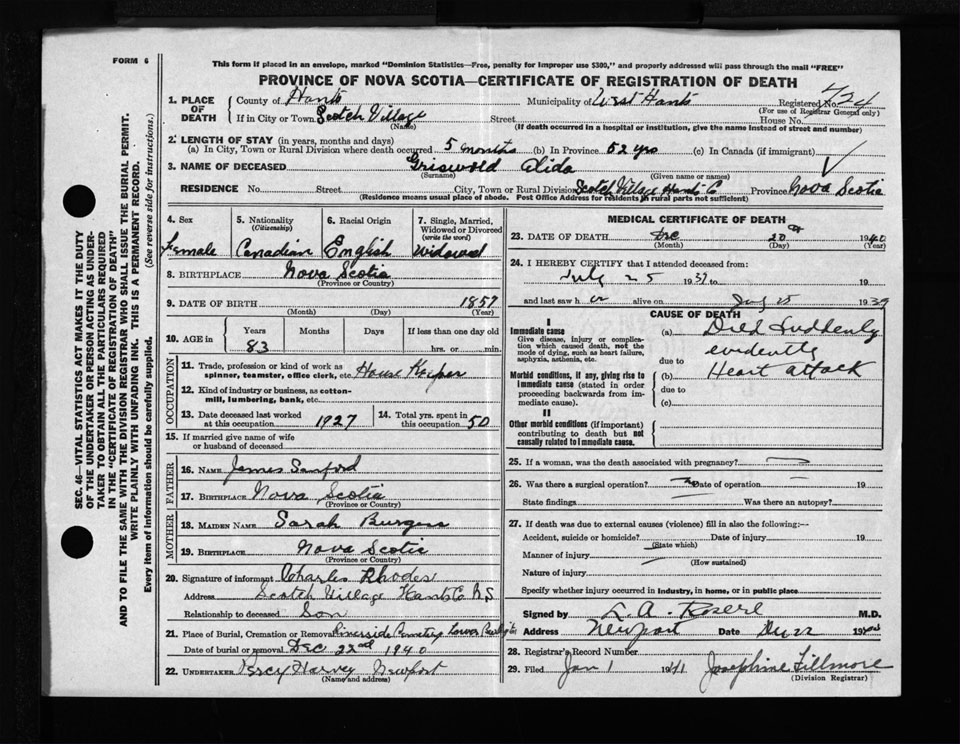 FORM 6
This form if placed in an envelope, marked "Dominion Statistics—Free, penalty for improper use $300," and properly addressed will pass through the mail "FREE"
PROVINCE OF NOVA SCOTIA—CERTIFICATE OF REGISTRATION OF DEATH
1. PLACE OF DEATH County of Hants Municipality of West Hants Registered No. 424
(For use of Registrar General only)
If in City or Town Scotch Village Street House No.
(Name) (If death occurred in a hospital or institution, give the name instead of street and number)
2. LENGTH OF STAY (in years, months and days)
(a) In City, Town or Rural Division where death occurred 5 months (b) In Province 52 yrs (c) In Canada (if immigrant)
3. NAME OF DECEASED Griswold Alida
(Surname) (Given name or names)
RESIDENCE No. Street City, Town or Rural Division Scotch Village Hants Co Province Nova Scotia
(Residence means usual place of abode. Post Office Address for residents in rural parts not sufficient)
4. Sex Female
5. Nationality (Citizenship) Canadian
6. Racial Origin English
7. Single, Married, Widowed or Divorced (write the word) Widowed
8. BIRTHPLACE Nova Scotia
(Province or Country)
9. DATE OF BIRTH 1857
(Month) (Day) (Year)
10. AGE in Years 83 Months Days If less than one day old hrs. or min.
OCCUPATION
11. Trade, profession or kind of work as spinner, teamster, office clerk, etc. House Keeper
12. Kind of industry or business, as cotton-mill, lumbering, bank, etc.
13. Date deceased last worked at this occupation 1927
14. Total yrs. spent in this occupation 50
15. If married give name of wife or husband of deceased
FATHER
16. NAME James Sanford
17. BIRTHPLACE Nova Scotia
(Province or Country)
MOTHER
18. MAIDEN NAME Sarah Burgess
19. BIRTHPLACE Nova Scotia
(Province or Country)
20. Signature of informant Charles Rhodes
Address Scotch Village Hants Co N S
Relationship to deceased Son
21. Place of Burial, Cremation or Removal Riverside Cemetery Lower
Date of burial or removal Dec 22nd 1940
22. UNDERTAKER Percy Harvey Newport
(Name and address)
MEDICAL CERTIFICATE OF DEATH
23. DATE OF DEATH Dec 20th 1940
(Month) (Day)
24. I HEREBY CERTIFY that I attended deceased from:
July 25 1939 to 19
and last saw h er alive on July 25 1939
CAUSE OF DEATH
I
Immediate cause
Give disease, injury or complication which caused death, not the mode of dying, such as heart failure, asphyxia, asthenia, etc.
(a) Died Suddenly
evidently
due to
Morbid conditions, if any, giving rise to immediate cause (stated in order proceeding backwards from immediate cause).
(b) Heart attack
due to
(c)
II
Other morbid conditions (if important) contributing to death but not causally related to immediate cause.
25. If a woman, was the death associated with pregnancy?
26. Was there a surgical operation? Date of operation 19
State findings Was there an autopsy?
27. If death was due to external causes (violence) fill in also the following:—
Accident, suicide or homicide? Date of injury 19
(State which)
Manner of injury
(How sustained)
Nature of injury
Specify whether injury occurred in industry, in home, or in public place
Signed by M.D.
Address Newport Date Dec 22 1940
28. Registrar's Record Number
29. Filed Jan 1 1941 Josephine Fillmore
(Division Registrar)
SEC. 46—VITAL STATISTICS ACT MAKES IT THE DUTY
OF THE UNDERTAKER OR PERSON ACTING AS UNDER-
TAKER TO OBTAIN ALL THE PARTICULARS REQUIRED
IN THE "CERTIFICATE OF REGISTRATION OF DEATH"
AND TO FILE THE SAME WITH THE DIVISION REGISTRAR WHO SHALL ISSUE THE BURIAL PERMIT.
WRITE PLAINLY WITH UNFADING INK. THIS IS A PERMANENT RECORD.
Every item of information should be carefully supplied. (See reverse side for instructions.)